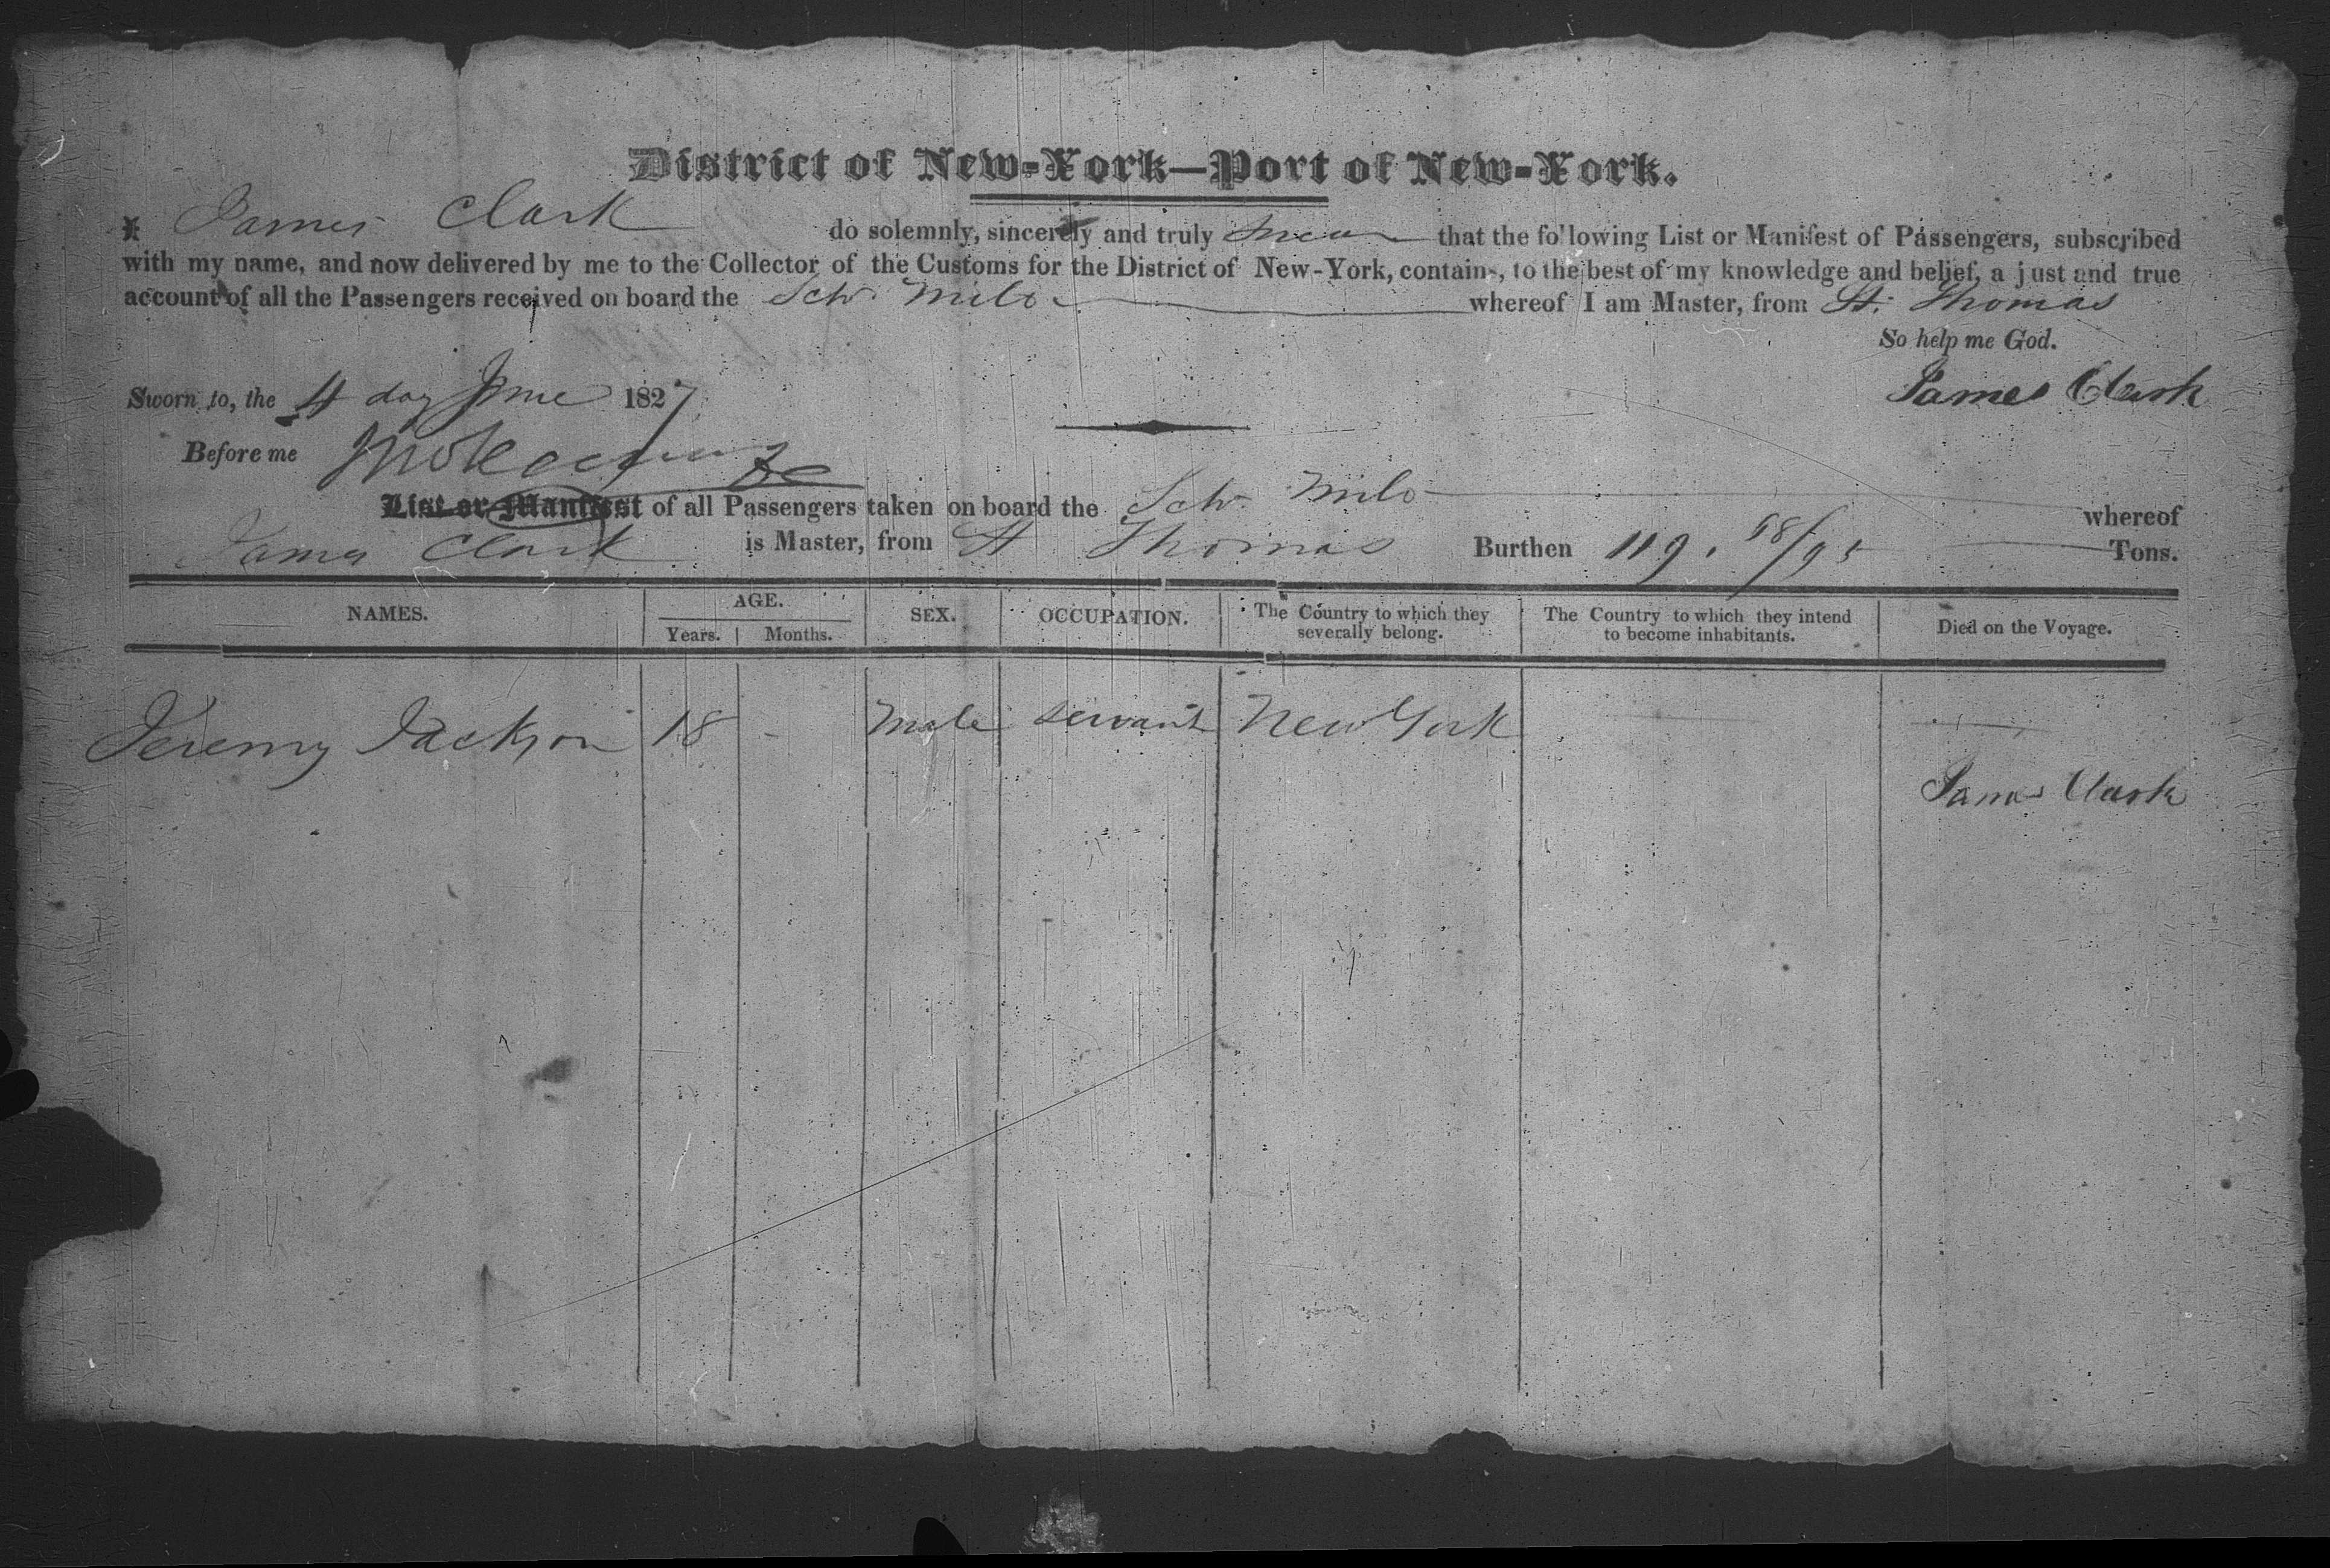 District of New-York—Port of New-York.
I James Clark do solemnly, sincerely and truly swear that the following List or Manifest of Passengers, subscribed
with my name, and now delivered by me to the Collector of the Customs for the District of New-York, contains, to the best of my knowledge and belief, a just and true
account of all the Passengers received on board the Schr Milo whereof I am Master, from St. Thomas
So help me God.
Sworn to, the 4 day June 1827 James Clark
Before me
List or Manifest of all Passengers taken on board the Schr Milo whereof
James Clark is Master, from St Thomas Burthen 119. 58/95 Tons.
NAMES. AGE. SEX. OCCUPATION. The Country to which they severally belong. The Country to which they intend to become inhabitants. Died on the Voyage.
Years. Months.
Jeremy Jackson 18 - Male servant New York
James Clark